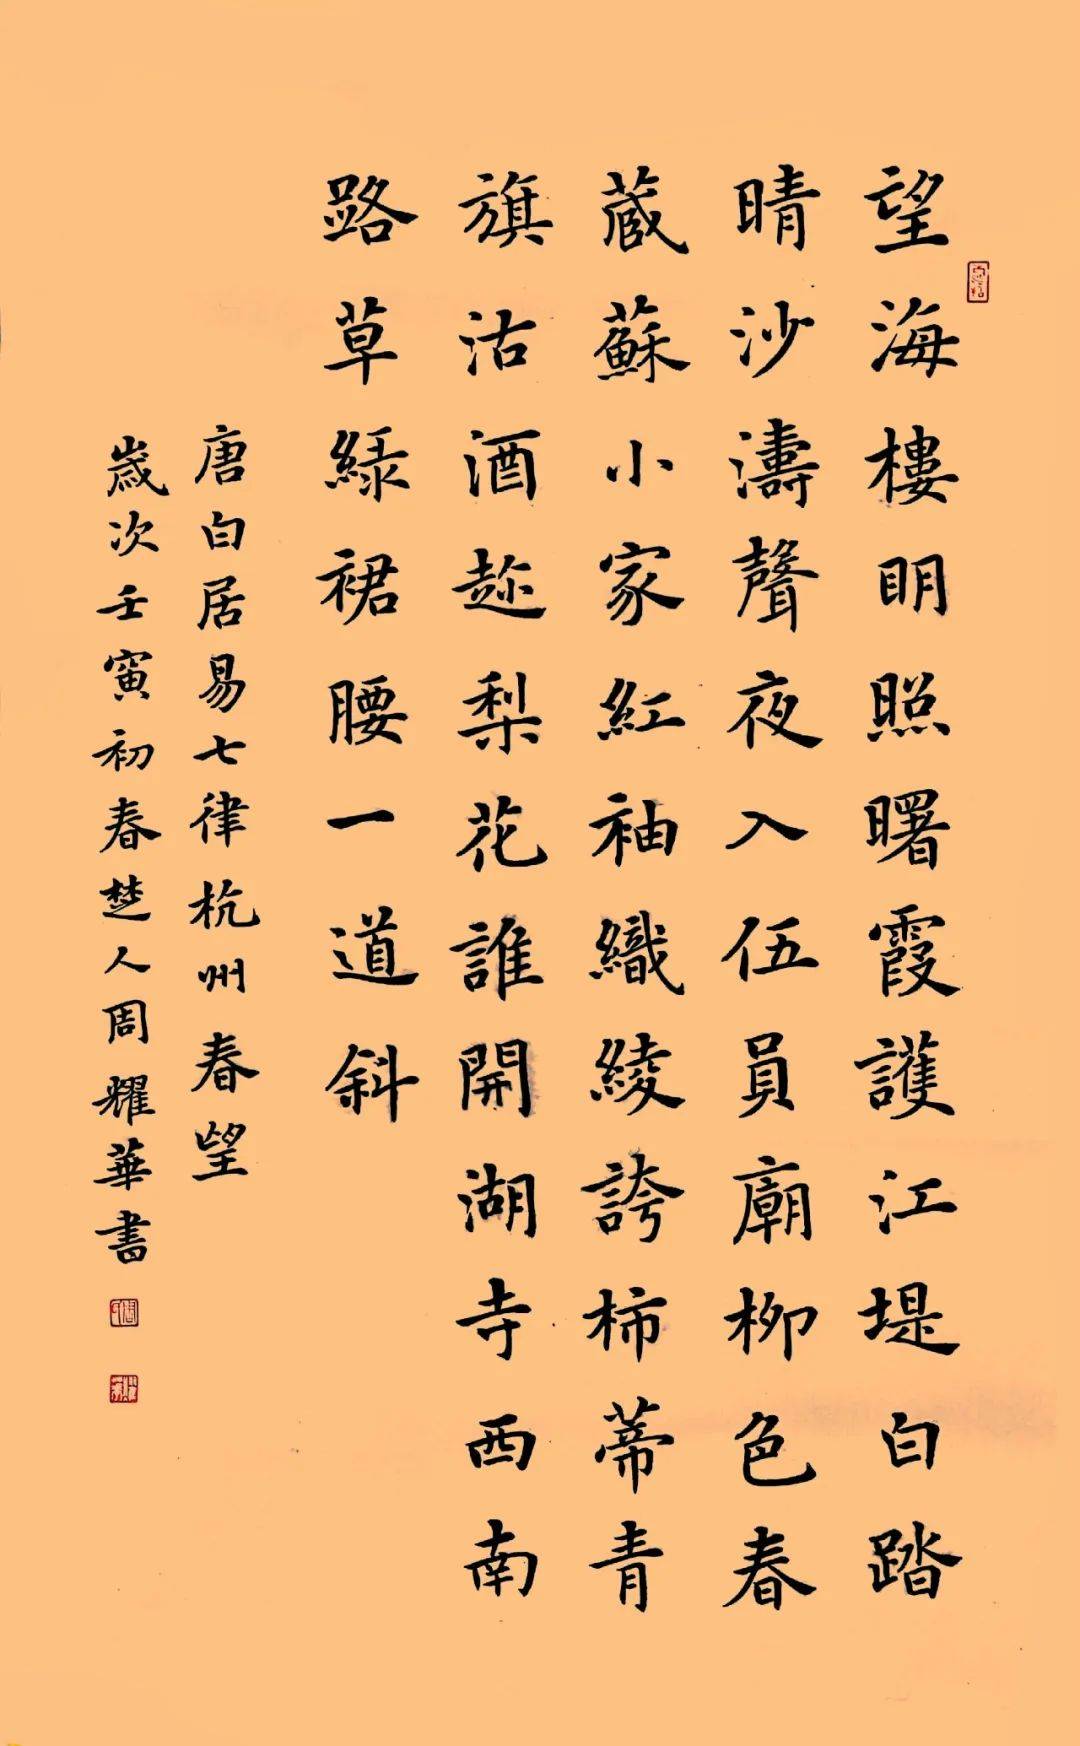 望海樓明照曙霞護江堤白踏
晴沙濤聲夜入伍員廟柳色春
藏蘇小家紅袖織綾誇柿蒂青
旗沽酒趂梨花誰開湖寺西南
路草綠裙腰一道斜
唐白居易七律杭州春望
歲次壬寅初春楚人周耀華書